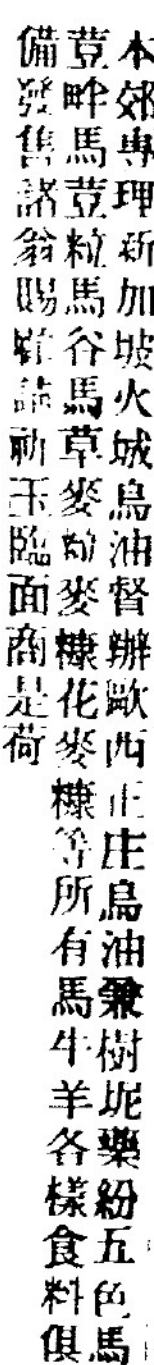 本郊專理新加坡火城烏油督辦歐西正庄烏油兼樹坭藥紛五色馬
荳畔馬荳粒馬谷馬草麥麥糠花麥糠等所有馬牛羊各樣食料俱
備發售諸翁賜玉臨面商是荷